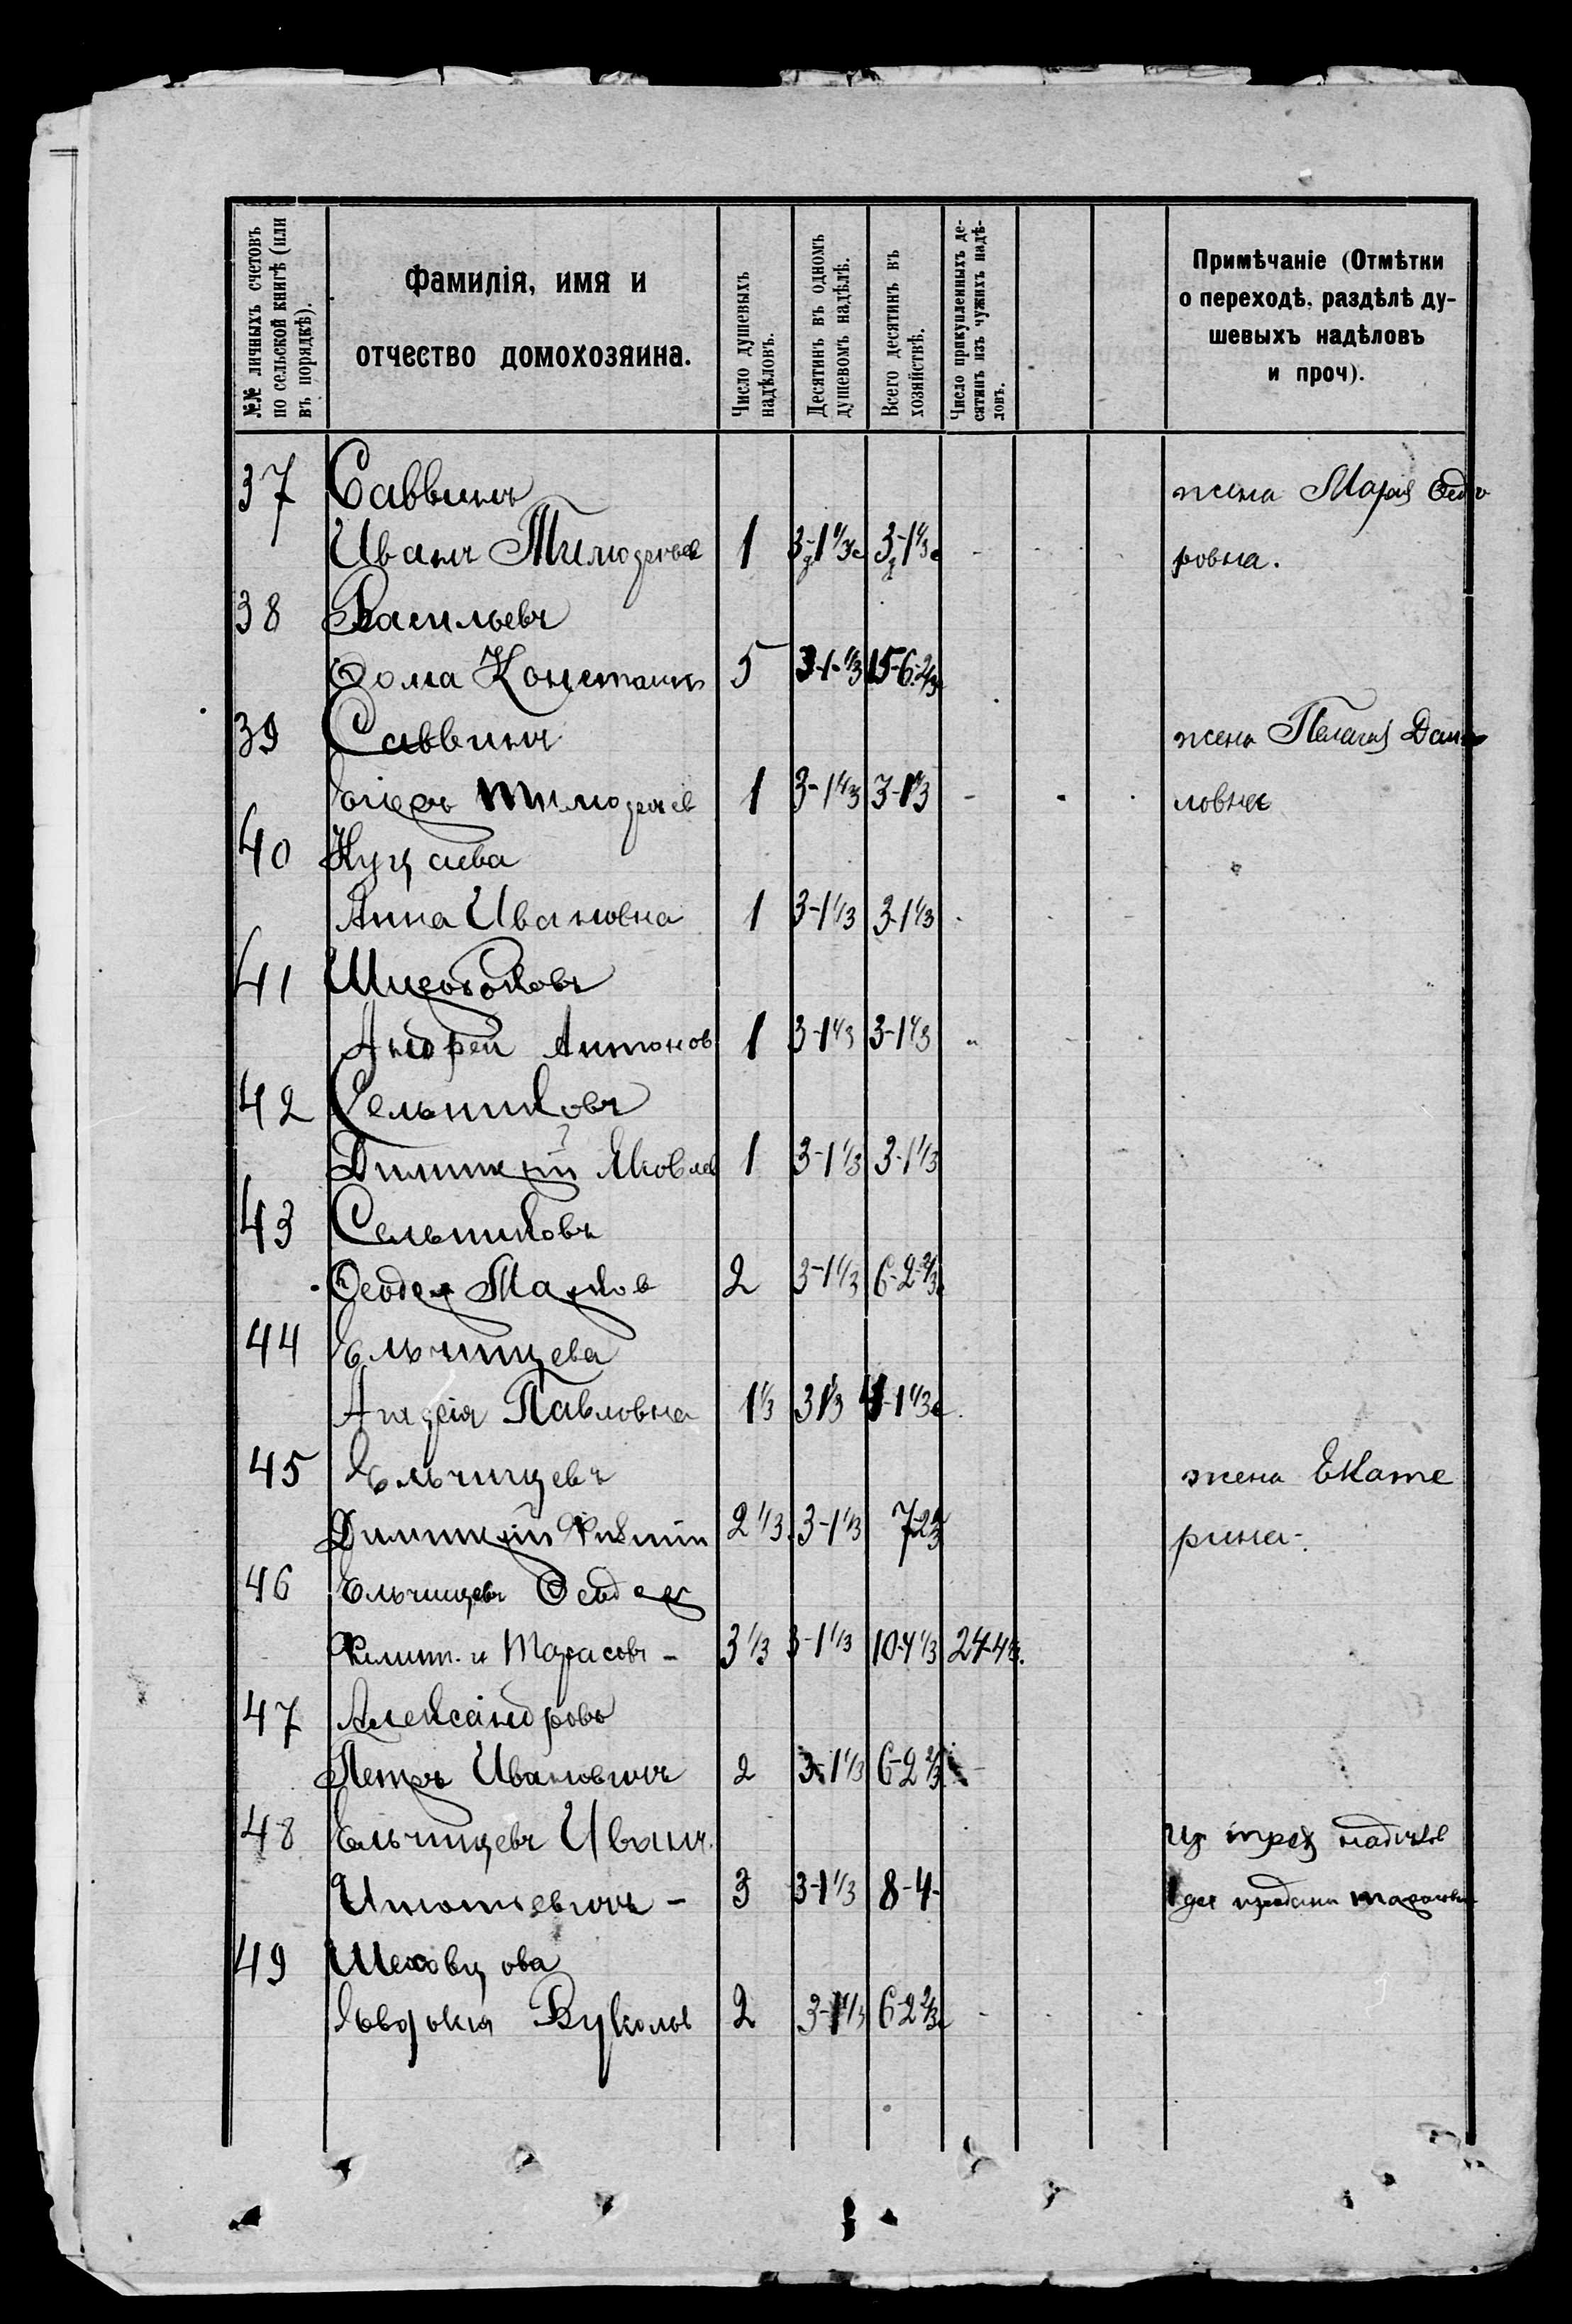 №№ личныхъ счетовъ по сельской книгѣ (или въ порядкѣ).
Фамилія, имя и отчество домохозяина.
Число душевыхъ надѣловъ.
Десятинъ въ одномъ душевомъ надѣлѣ.
Всего десятинъ въ хозяйствѣ.
Число прикупленныхъ десятинъ изъ чужихъ надѣловъ.
Примѣчаніе (Отмѣтки о переходѣ, раздѣлѣ душевыхъ надѣловъ и проч).
37 Саввинъ жена Марія Ѳедо
Иванъ Тимофеев 1 3-1 1/3 3-1 1/3 ровна.
38 Васильевъ
Ѳома Констант 5 3-1-1/3 15-6-2/3
39 Саввинъ жена Пелагія Дани
Тимофеев 1 3-1 1/3 3-1 1/3 ловна
40 Куцаева
Анна Ивановна 1 3-1 1/3 3-1 1/3
41 Широбоковъ
Андрей Антонов 1 3-1 1/3 3-1 1/3
42 Сельниковъ
Димитрій Яковлев 1 3-1 1/3 3-1 1/3
43 Сельниковъ
Ѳеодор Марков 2 3-1 1/3 6-2 2/3
44 Ельчищева
Агафія Павловна 1 1/3 3 1/3 4-1 1/3
45 Ельчищевъ жена Екате
Димитрій 2 1/3 3-1 1/3 7-2 2/3 рина-
46 Ельчищевъ Ѳеодор
Филип. и Тарасовъ - 3 1/3 3-1 1/3 10-4 1/3
47 Александровъ
Петръ Ивановичъ 2 3-1 1/3 6-2 2/3
48 Ельчищевъ Иванъ Из трех наделов
Игнатьевичъ - 3 3-1 1/3 8-4-
49 Шеховцова
Евдокия Вукулов 2 3-1 1/3 6-2 2/3